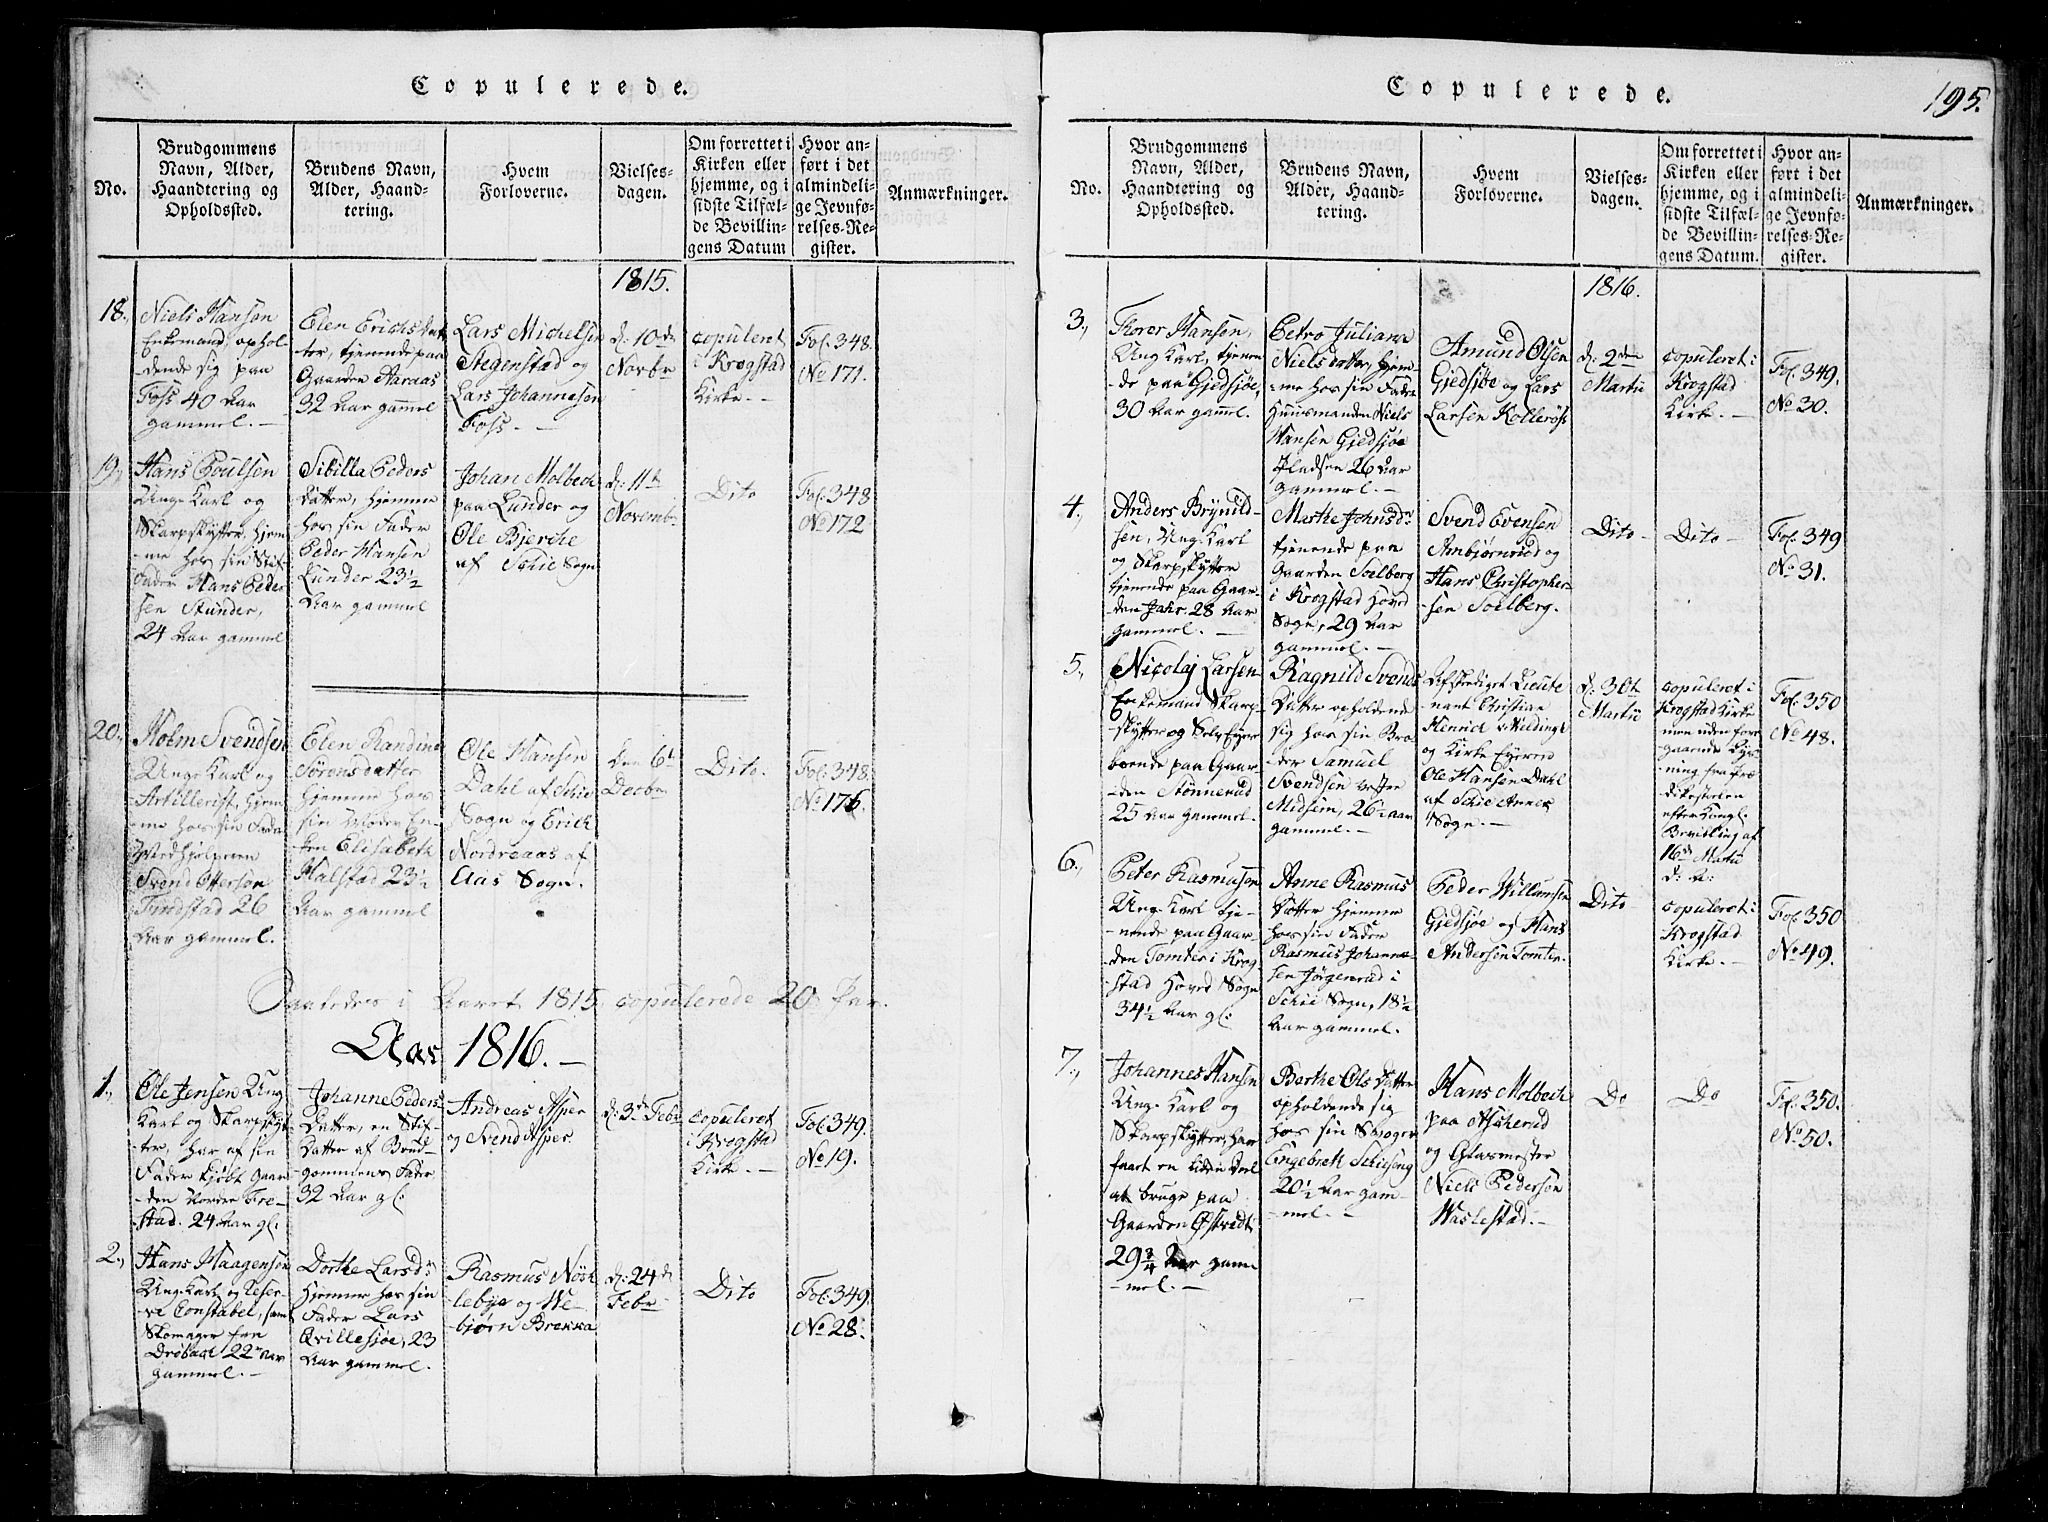 Copulerede.
No.
Brudgommens
Navn, Alder,
Haandtering og
Opholdssted.
Brudens Navn,
Alder, Haand-
tering.
Hvem
Forloverne.
Vielses-
dagen.
Om forrettet i
Kirken eller
hjemme, og i
sidste Tilfæl-
de Bevillin-
gens Datum
Hvor an-
ført i det
almindeli-
ge Jevnfø-
relses-Re-
gister.
Anmærkninger.
1815.
18.,
Niels Hansen
Enkemand, ophol
dende sig paa
Foss 40 Aar
gammel. —
Elen Erichs Dat
ter, tjenende paa
Gaarden Aaraas
32 Aar gammel
Lars Michelsen
Stegenstad og
Lars Johannesen
Foss. —
d: 10de
Novbr
copuleret
i Krogstad
Kirke. —
Fol. 348.
No 171.
19.,
Hans Poulsen
Ung Karl og
Skarpskytter, hjem
me hos sin Stif
fader Hans Peder
sen Stunder,
24 Aar gammel
Sibilla Peders
Datter, hjemme
hos sin Fader
Peder Hansen
Lunder 23½
Aar gammel
Johan Molbech
paa Lunder og
Ole Bjerche
af Schie Sogn
d: 11te
Novembr
Dito
Fol. 348
No 172
20.,
Holm Svendsen
Ung Karl og
Artillerist, hjem
me hos sin Fader
Medhjelperen
Svend Ottersen
26
Aar gammel.
Elen Randine
Sørensdatter
hjemme hos
sin Moder En-
ken Elisabeth
Halstad 23½
Aar gammel
Ole Hansen
Dahl af Schie
Sogn og Erich
Nordreaas af
Aas Sogn.
den 6te
Decbr
Dito.
Fol. 348.
No 176.
Saaledes i Aaret 1815 copulerede 20 Par.
Aar 1816. —
1.,
Ole Jensen Ung
Karl og Skarpskyt
ter, har af sin
Fader kjøbt Gaar
den Nordre Fre-
stad. 24 Aar gl:
Johanne Peders
Datter, en Stif
Datter af Brud-
gommens Fader
32 Aar gl:
Andreas Asper
og Svend Asper.
d: 3de Febr
copuleret
i Krogstad
Kirke. —
Fol. 349.
No 19.
2.,
Hans Haagensen
Ung Karl og Reser-
ve Constabel, samt
Skomager fra
Drøbach 22 Aar
gammel. —
Dorthe Larsdr
hjemme hos sin
Fader Lars
Qvillesjøe, 23
Aar gammel.
Rasmus Nøst
lebye og We-
bjørn Brekka
d: 24de
Febr
Dito
Fol. 349.
No 28.
Copulerede.
195.
No.
Brudgommens
Navn, Alder,
Haandtering og
Opholdsted.
Brudens Navn,
Alder, Haand-
tering.
Hvem
Forloverne.
Vielses-
dagen.
Om forrettet i
Kirken eller
hjemme, og i
sidste Tilfæl-
de Bevillin-
gens Datum.
Hvor an-
ført i det
almindeli-
ge Jevnfø-
relses-Re-
gister.
Anmærkninger.
1816.
3.,
Thorer Hansen,
Ung Karl, tjenen
de paa Gjedsjøe,
30 Aar gamml.
Petro Juliane
Niels datter, hjem
me hos sin Fader
Huusmanden Niels
Hansen Gjedsjøe
Pladsen 26 Aar
gammel. —
Amund Olsen
Gjedsjøe og Lars
Larsen Kollerøs
d: 2den
Martii
copuleret i
Krogstad
Kirke. —
Fol. 349.
No 30.
4.,
Anders Brynild-
sen, Ung Karl
og Skarpskytter
tjenende paa Gaar
den 28 Aar
gammel. —
Marthe Johnsdr
tjenende paa
Gaarden Solberg
i Krogstad Hoved
Sogn, 29 Aar
gammel. —
Svend Evensen
Ambjørnrud og
Hans Christopher
sen Solberg.
Dito
Dito
Fol. 349
No 31.
5.,
Nicolaj Larsen
Enkemand Skarp-
skytter og Selv Ejer
boende paa Gaar-
den Stønnerud
25 Aar gammel.
Ragnild Svends
Datter opholdende
sig hos sin Bro
der Samuel
Svendsen vestre
Midsem, 26½ aar
gammel. —
Afskediget Lieute
nant Christian
Henrich
og Kirke Ejeren
Ole Hansen Dahl
af Schie Annex
Sogn. —
d: 30te
Martii
copuleret i
Krogstad Kirke
men uden fore
gaaende Lys-
ning fra Præ
dikestolen
efter Kongl.
Bevilling af
16de Martii
d: A:
Fol. 350
No 48.
6.,
Peter Rasmusen
Ung Karl tje-
nende paa Gaar-
den Tomter i Krog-
stad Hoved Sogn
34½ Aar gl:
Anne Rasmus
Datter hjemme
hos sin Fader
Rasmus Johanne
sen Jørgenrud i
Schie Sogn, 18½
Aar gammel.
Peder Willumsen
Gjedsjøe og Hans
Andersen Tomter.
Dito
copuleret i
Krogstad
Kirke. —
Fol. 350
No 49.
7.,
Johannes Hansen
Ung Karl og
Skarpskytter, har
faaet en liden Deel
at bruge paa
Gaarden Østvedt
29¾ Aar gam
mel. —
Berthe Ols Datter
opholdende sig
hos sin Svoger
Engebreth Schieeng
20½ Aar gam-
mel. —
Hans Molbech
paa Ascherud
og Glasmester
Niels Pedersen
Waslestad. —
Do
Do
Fol. 350.
No 50.